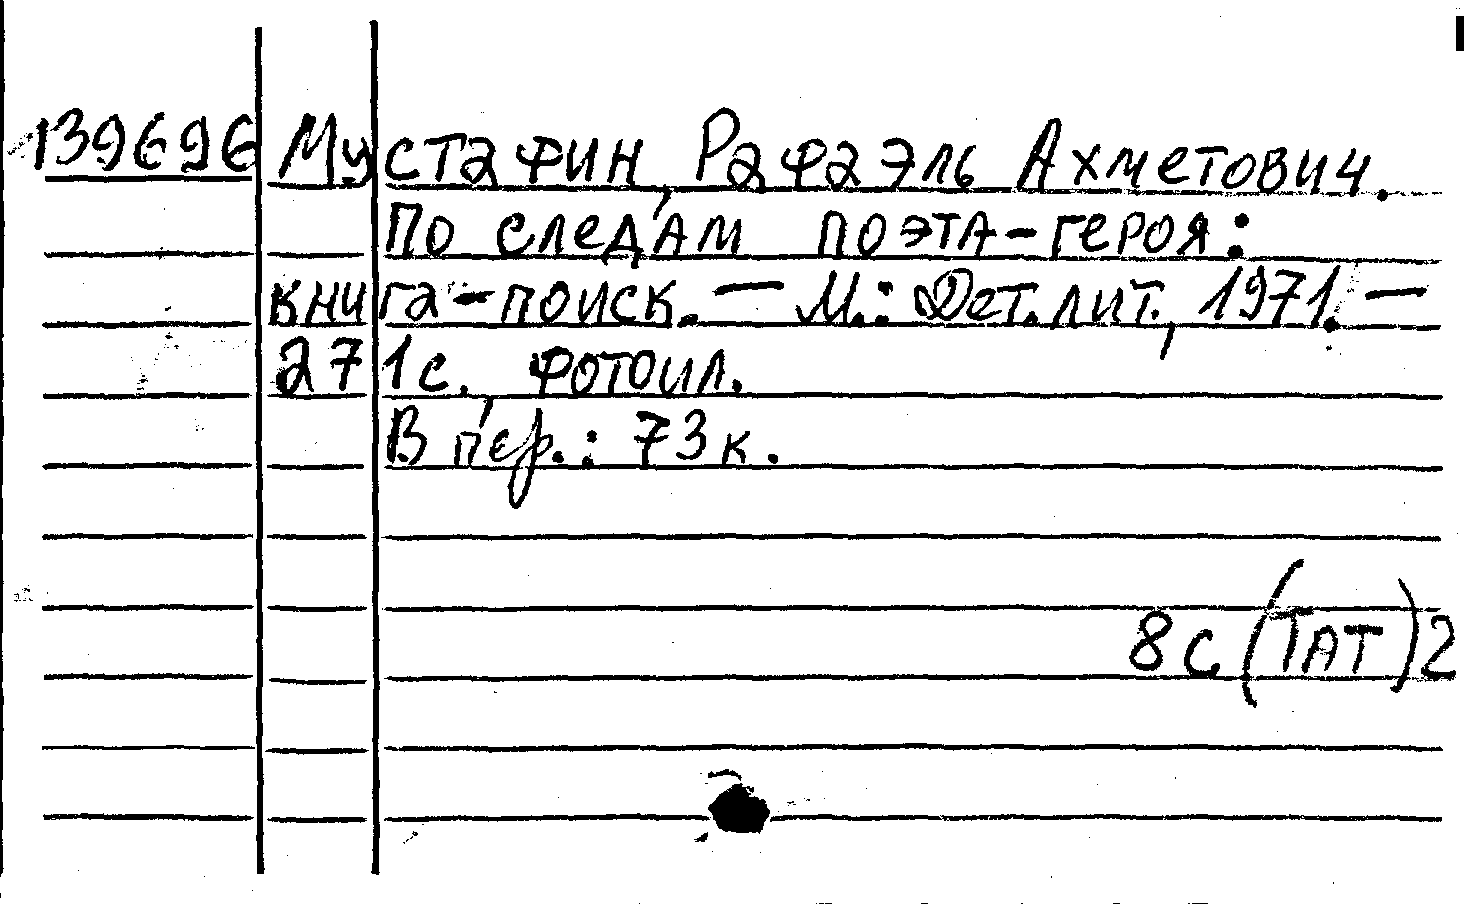 139696 Мустафин, Рафаэль Ахметович.
По следам поэта-героя:
книга-поиск. — М.: Дет. лит., 1971. —
271 с., фотоил.
В пер.: 73 к.
8С(ТАТ)2